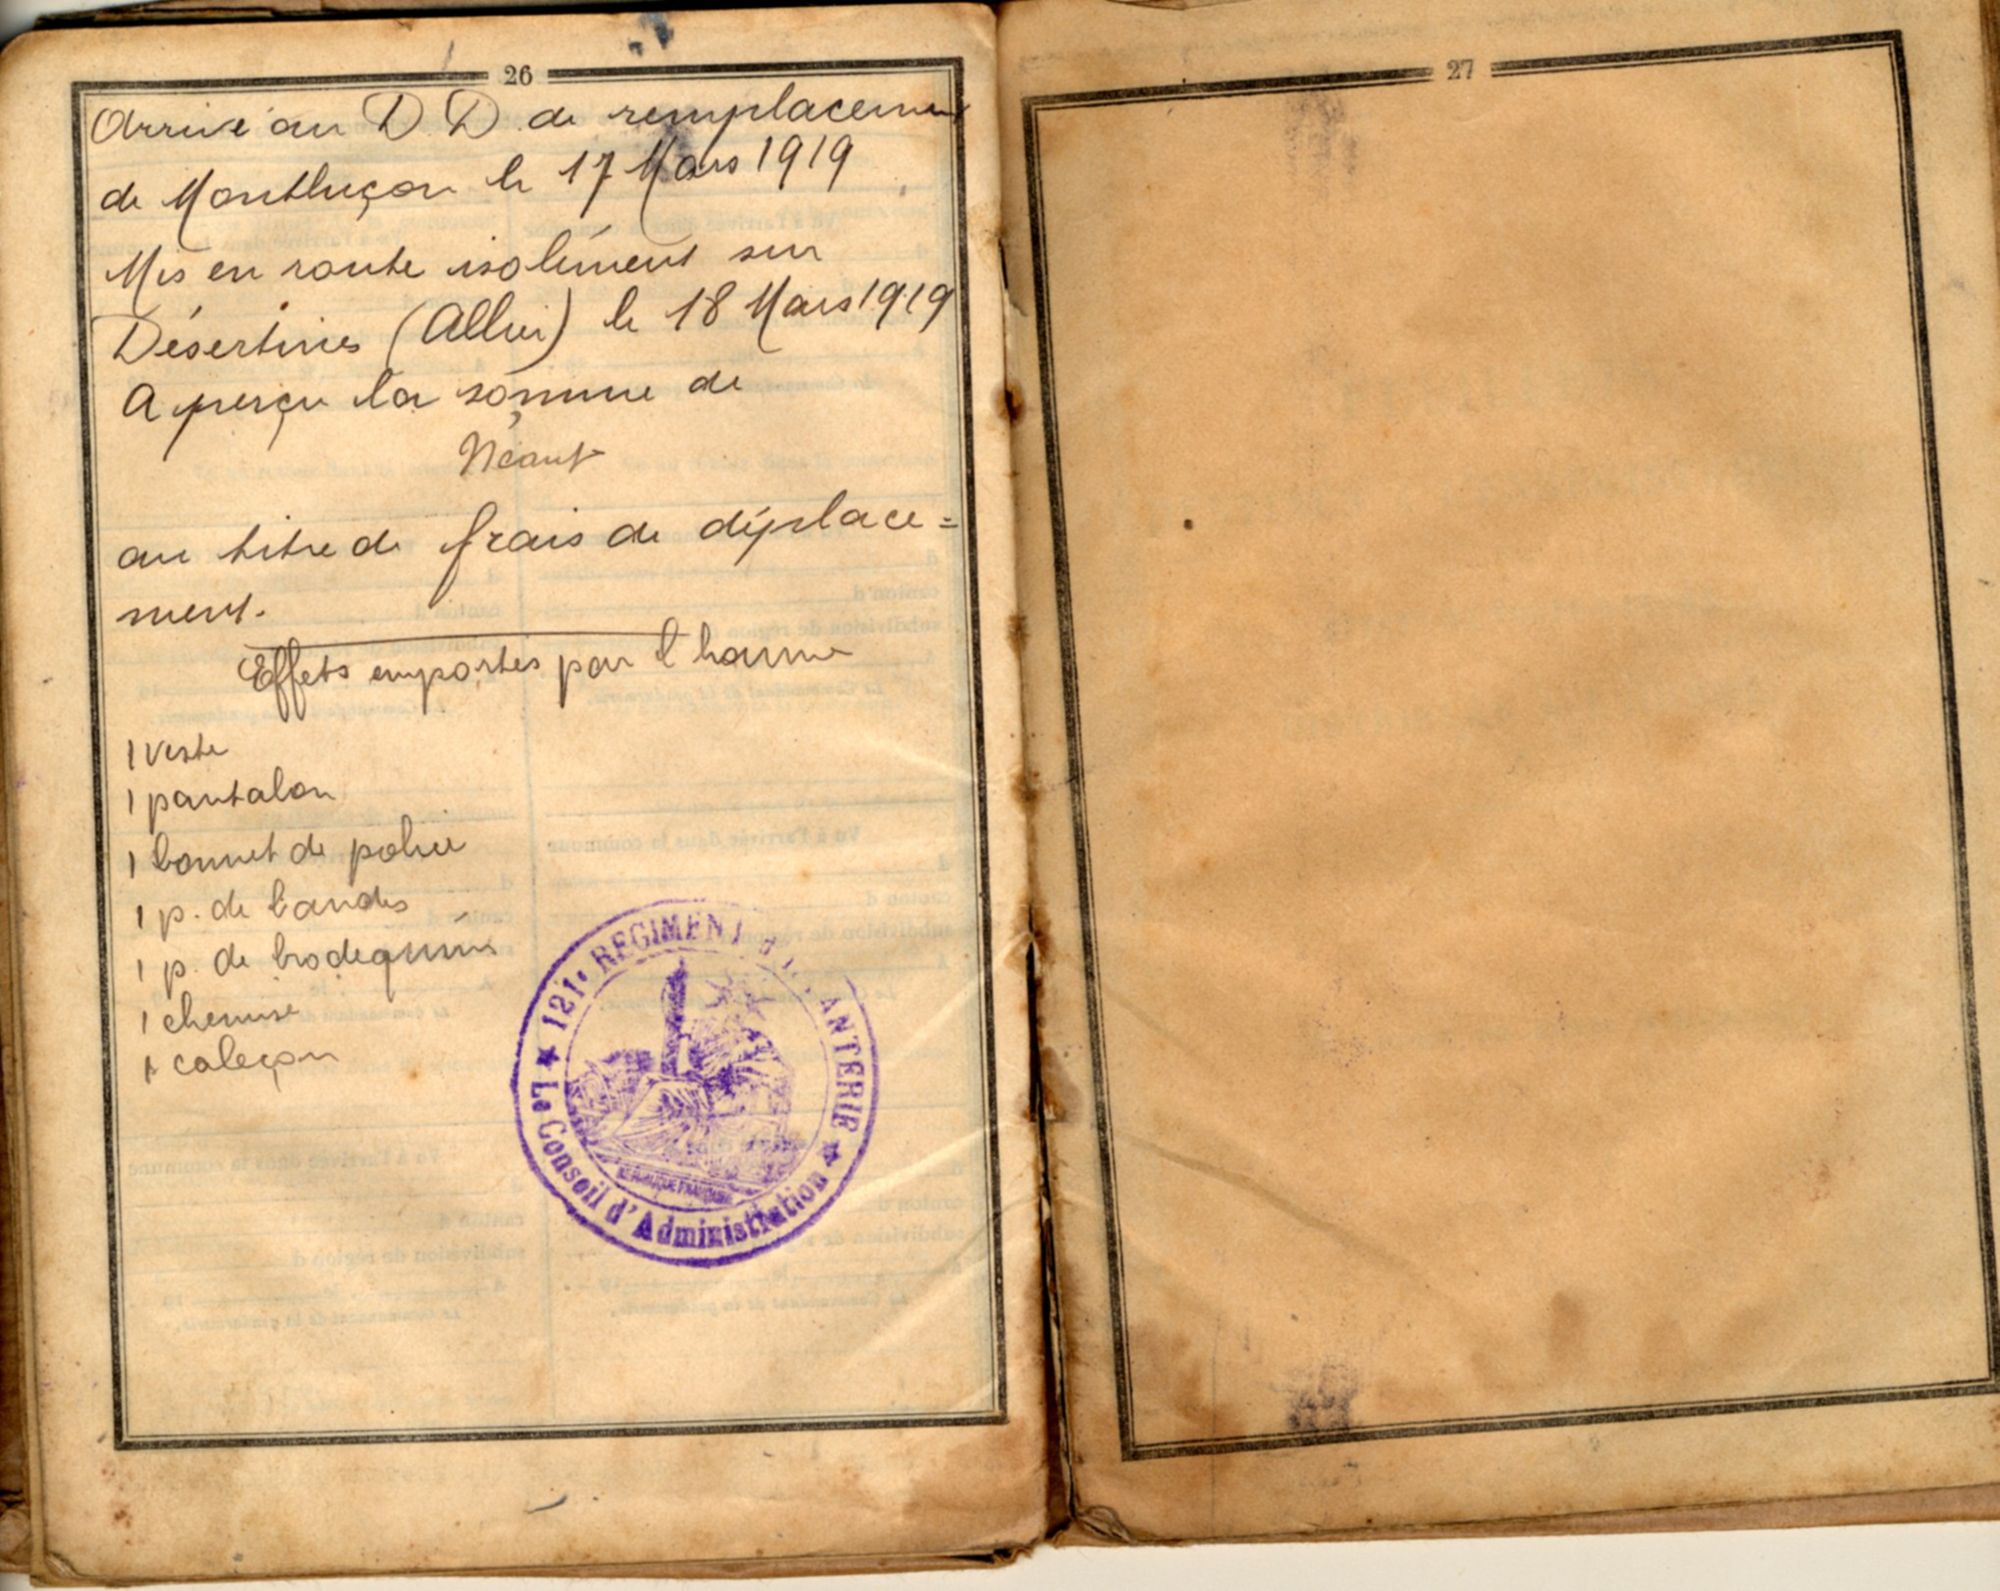 26
Arrivé au D D. de remplacement
de Montluçon le 17 Mars 1919
Mis en route isolément sur
Désertines (Allier) le 18 Mars 1919
A perçu la somme de
Néant
au titre de frais de déplace=
ment.
Effets emportés par l'homme
1 veste
1 pantalon
1 bonnet de police
1 p. de bandes
1 p. de brodequins
1 chemise
1 caleçon
★ 121e REGIMENT d'INFANTERIE ★
Le Conseil d'Administration
REPUBLIQUE FRANÇAISE
27